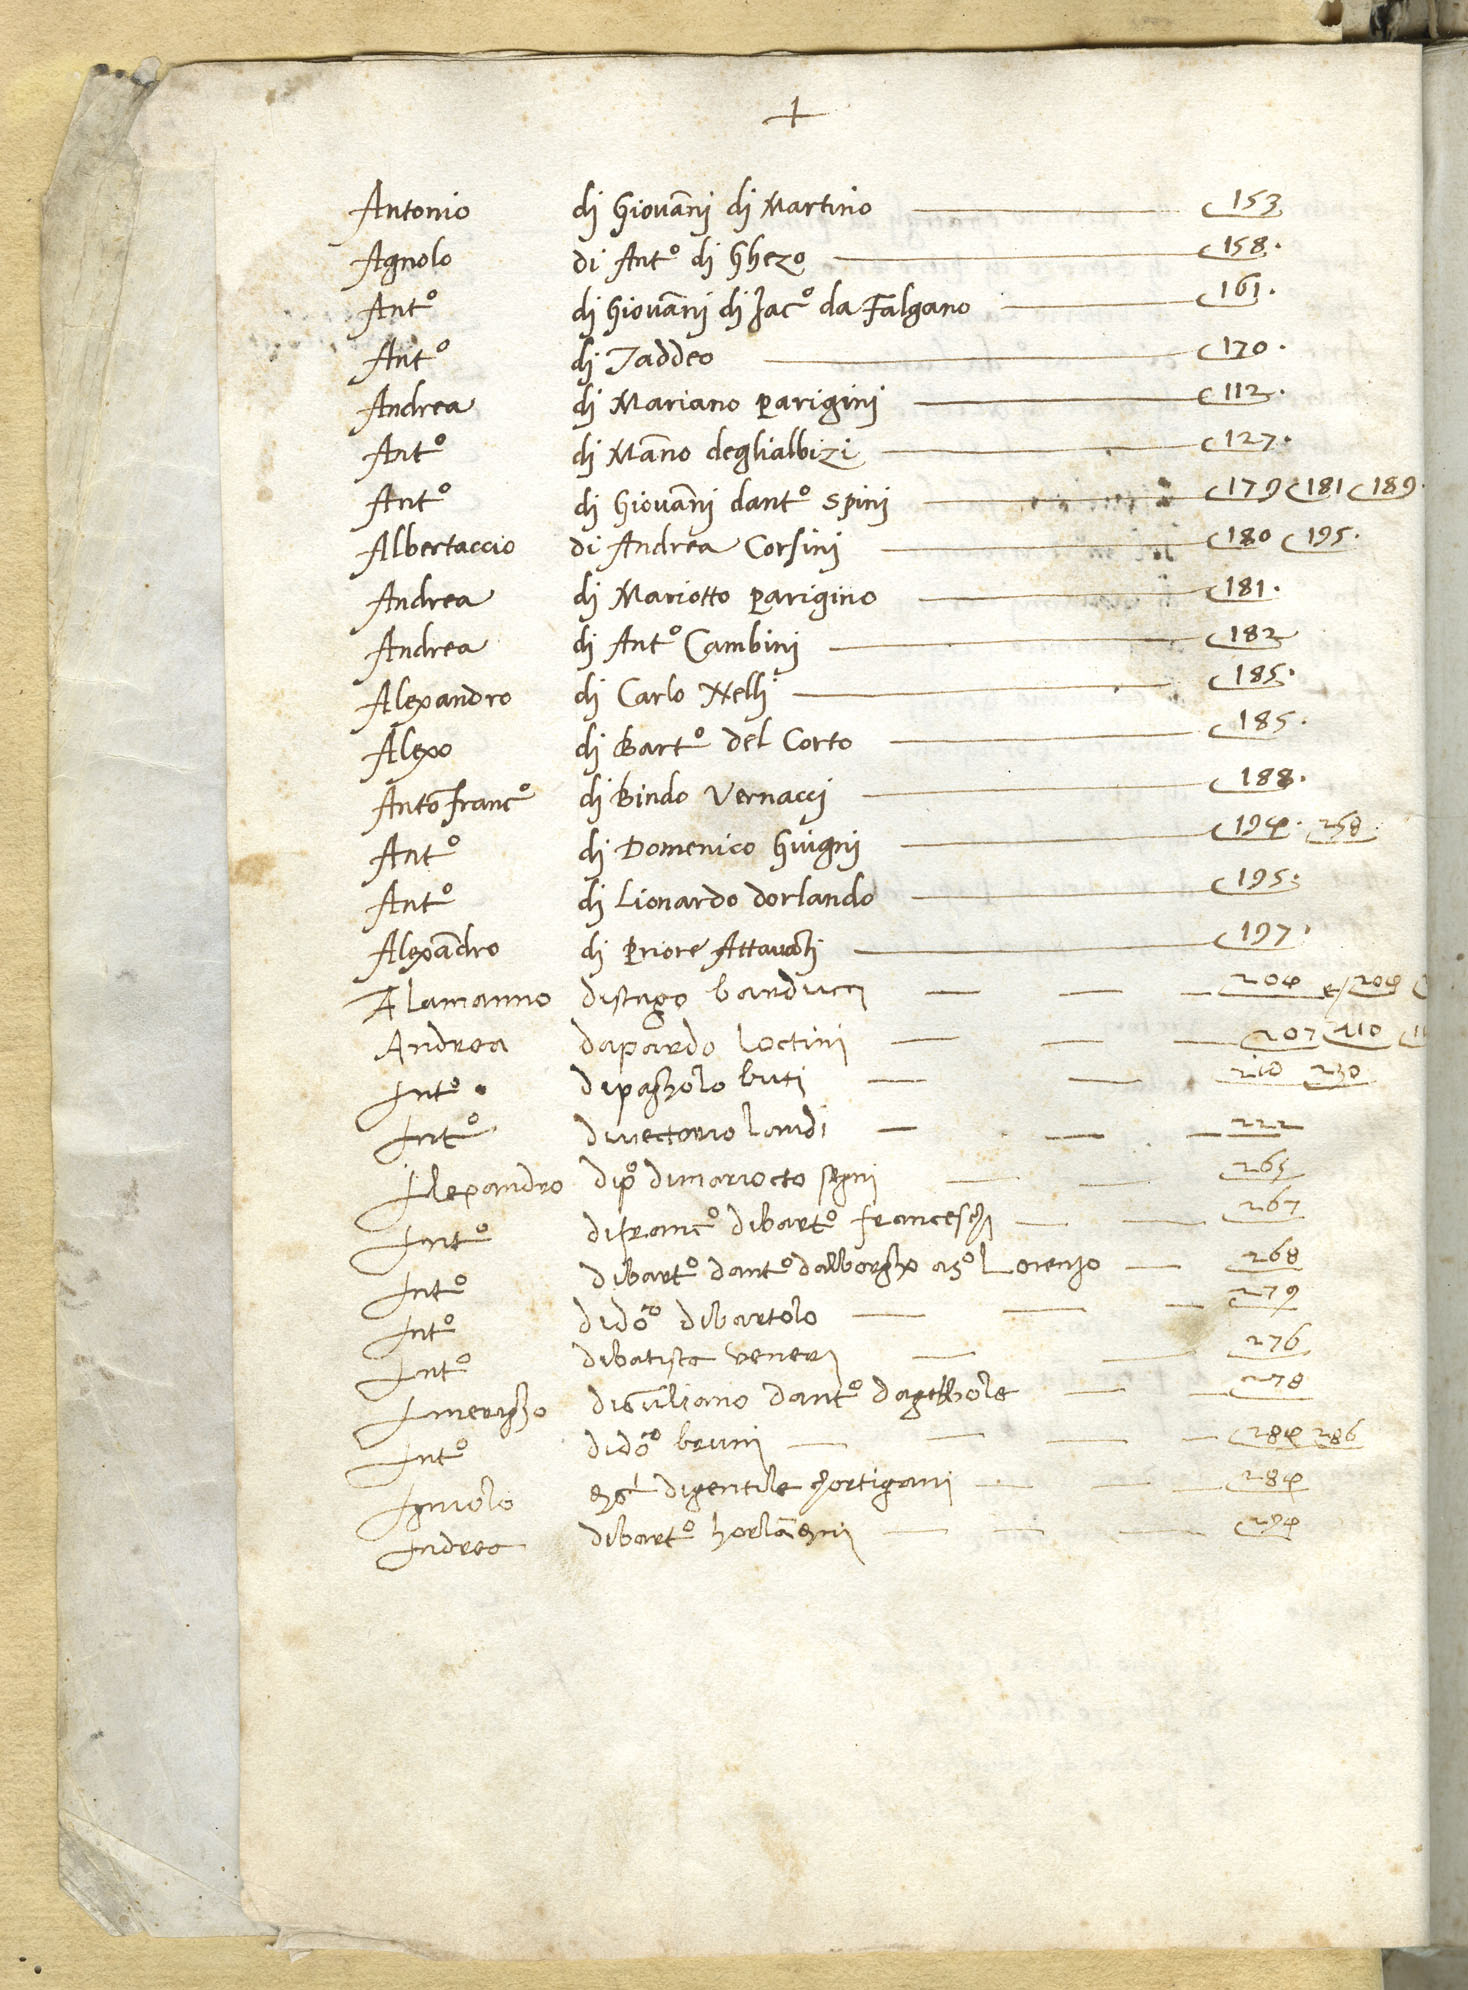 +
Antonio di Giovãni di Martino c 153
Agnolo di Antº di Ghezo c 158.
Antº di Giovãni di Jacº da Falgano c 161.
Antº di Taddeo c 170.
Andrea di Mariano parigini c 112.
Antº di Mãno deglialbizi c 127.
Antº di Giovãni dantº spini c 179 c 181 c 189.
Albertaccio di Andrea Corsini c 180 c 195.
Andrea di Mariotto parigino c 181.
Andrea di Antº Cambini c 182
Alexandro di Carlo Nelli c 185.
Alexo di Bartº del Corto c 185.
Antofrancº di Bindo Vernacci c 188.
Antº di Domenico Giugni c 194. c 258.
Antº di Lionardo dorlando c 195.
Alexãdro di priore Attavãti c 197.
Alamanno distago barducci c 204 e c 209
Andrea dapardo loctini c 207 c 210
Antº. dipagholo buti c 210 c 230
Antº divectorio landi c 222
Alexandro dipº dimariocto segni c 265
Antº difrancº dibartº franceschi c 267
Antº dibartº dantº dalborgho asº Lorenzo c 268
Antº didõº dibartolo c 279
Antº dibatista veneri c 276
Amerigho digiuliano dantº c 278
Antº didõº bruni c 284 c 286
Agniolo digentile chortigani c 284
Andrea dibartº c 294